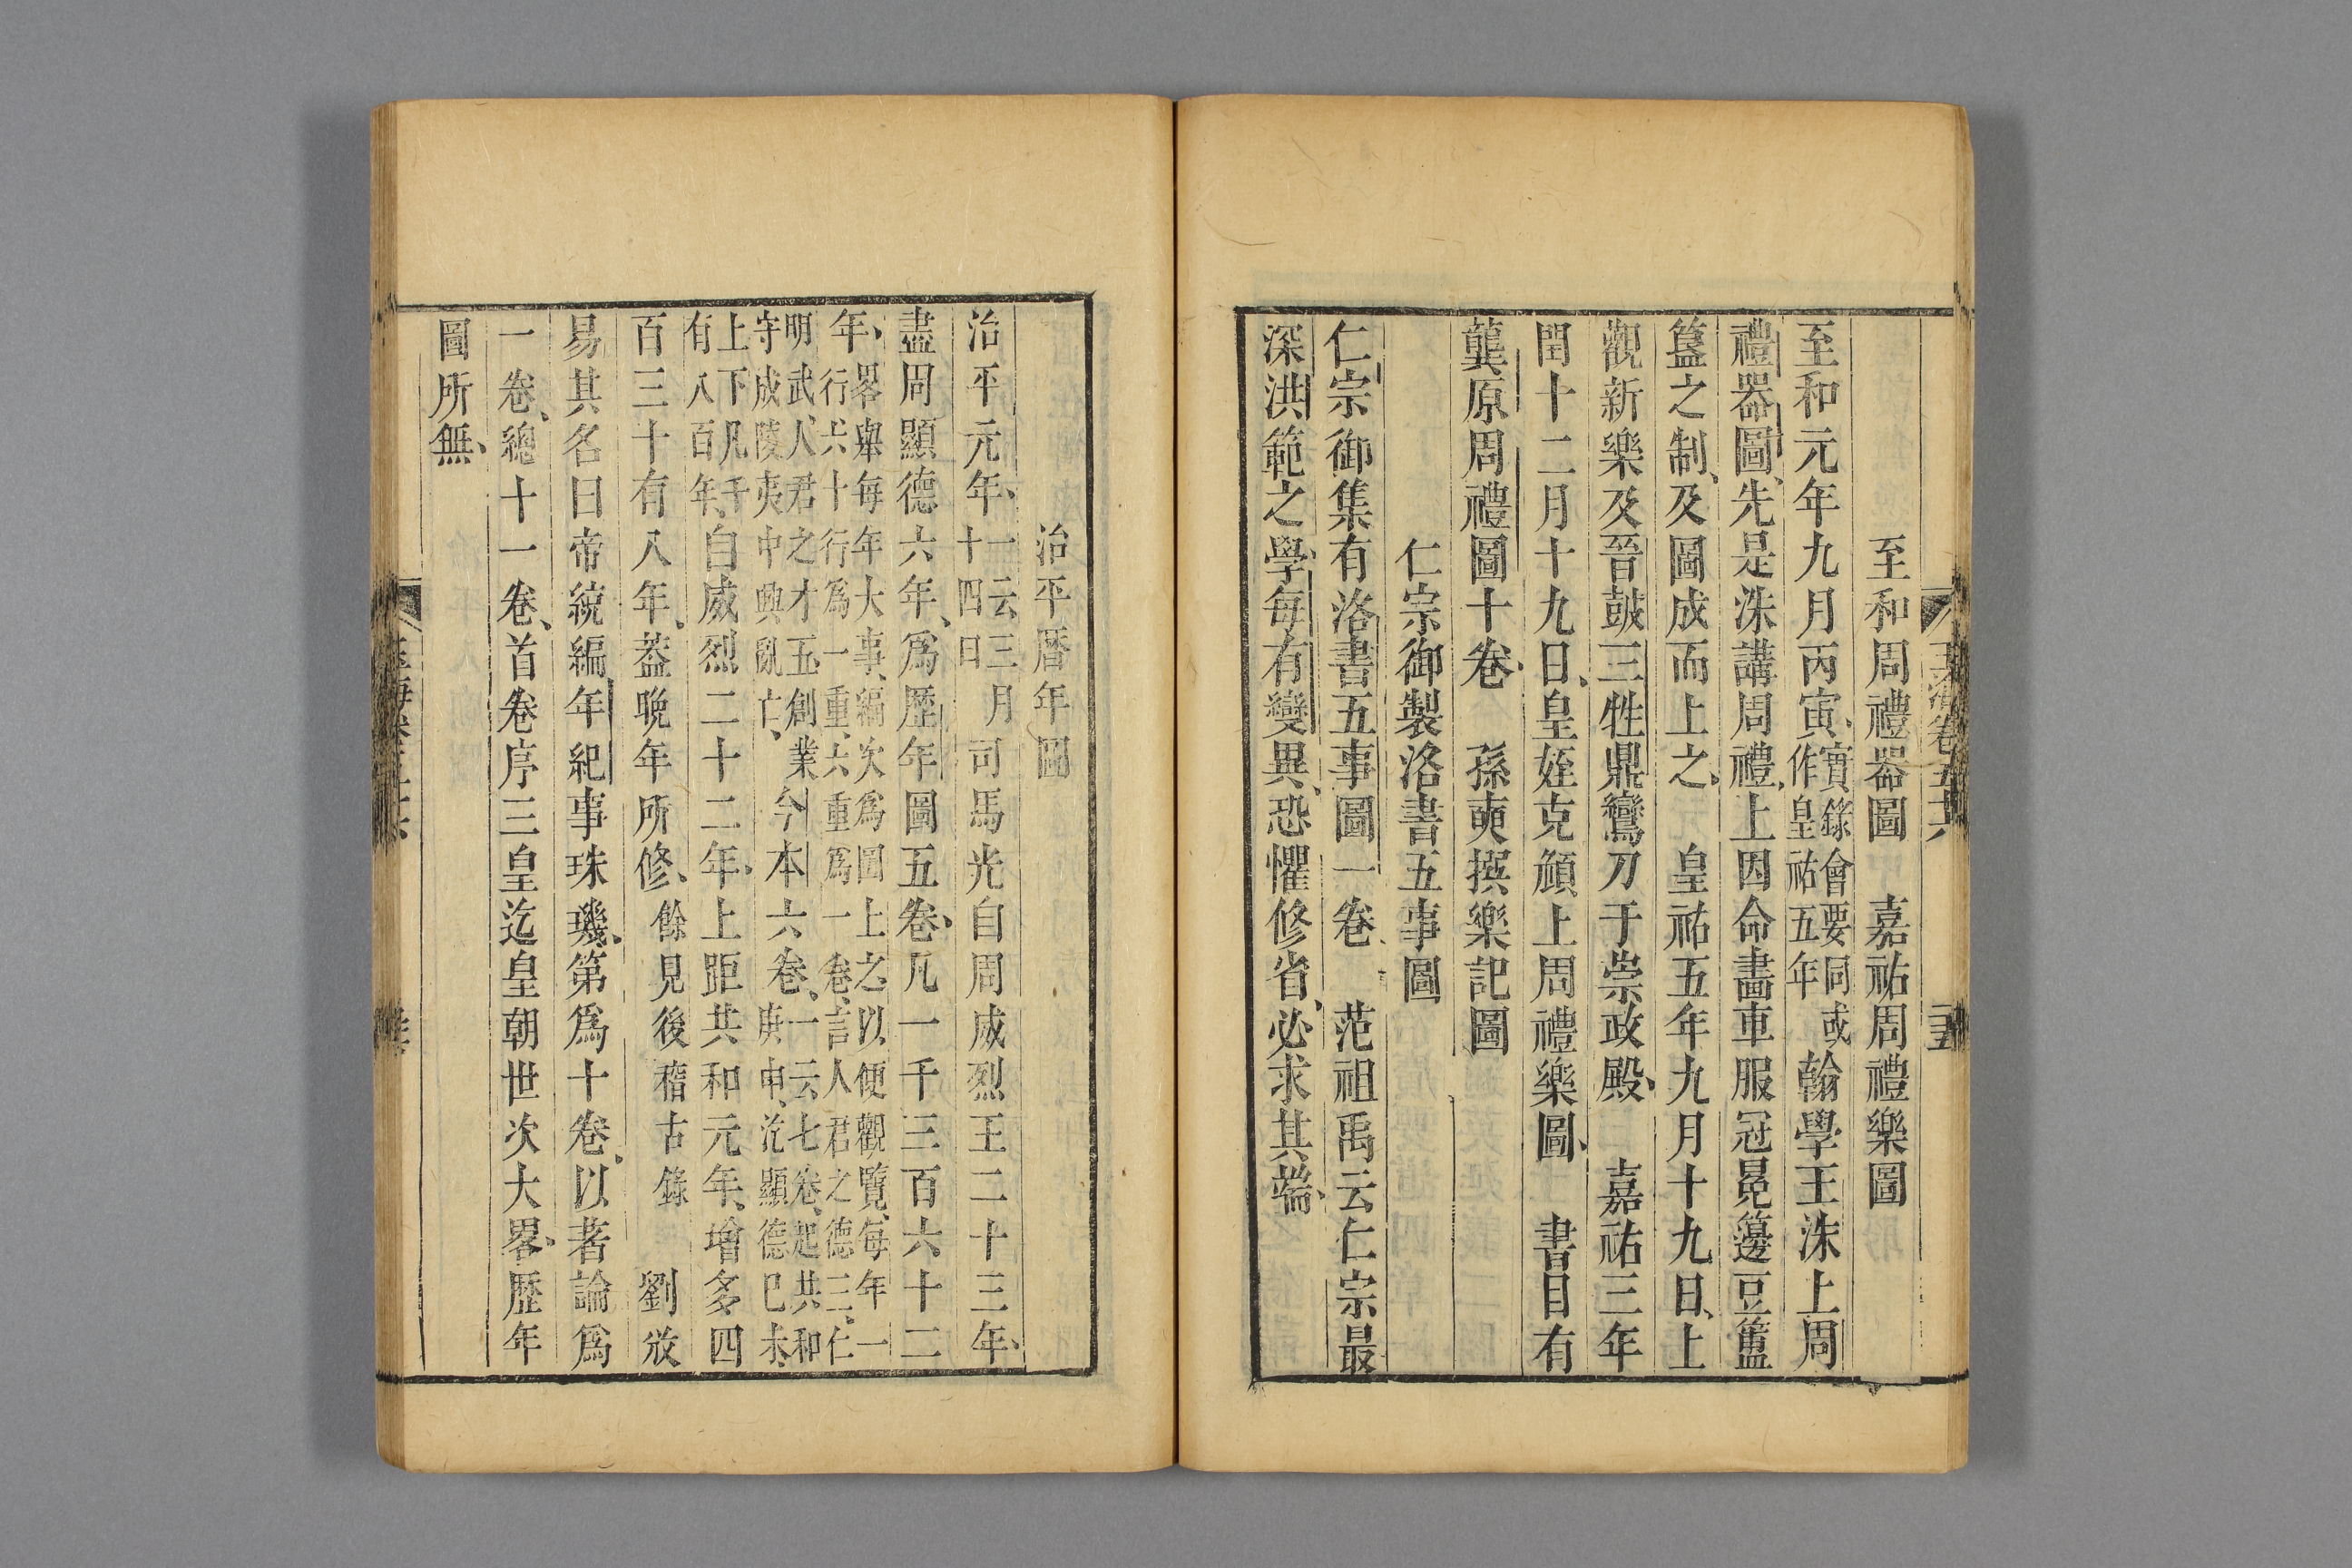 至和周禮器圖　嘉祐周禮樂圖
至和元年九月丙寅、實錄會要同或作皇祐五年翰學王洙上周
禮器圖、先是洙講周禮、上因命畫車服冠冕籩豆簠
簋之制、及圖成而上之、皇祐五年九月十九日、上
觀新樂及晉鼓三牲鼎鸞刀于崇政殿、嘉祐三年
閏十二月十九日、皇姪克頠上周禮樂圖、書目有
龔原周禮圖十卷、孫奭撰樂記圖
仁宗御製洛書五事圖
仁宗御集有洛書五事圖一卷、范祖禹云仁宗最
深洪範之學、每有變異、恐懼修省、必求其端、
治平曆年圖
治平元年、一云三月十四日司馬光自周威烈王二十三年、
盡周顯德六年、爲歷年圖五卷、凡一千三百六十二
年、畧舉每年大事、編次爲圖上之、以便觀覽、每年一行、六十行爲一重、六重爲一卷、言人君之德三、仁
明武、人君之才五、創業守成陵夷中興亂亡、今本六卷、一云七卷、起共和庚申、訖顯德己未、
上下凡千有八百年、自威烈二十二年、上距共和元年、增多四
百三十有八年、蓋晚年所修、餘見後稽古錄　劉攽
易其名曰帝統編年紀事珠璣、第爲十卷、以著論爲
一卷、總十一卷、首卷序三皇迄皇朝世次大畧、歷年
圖所無、